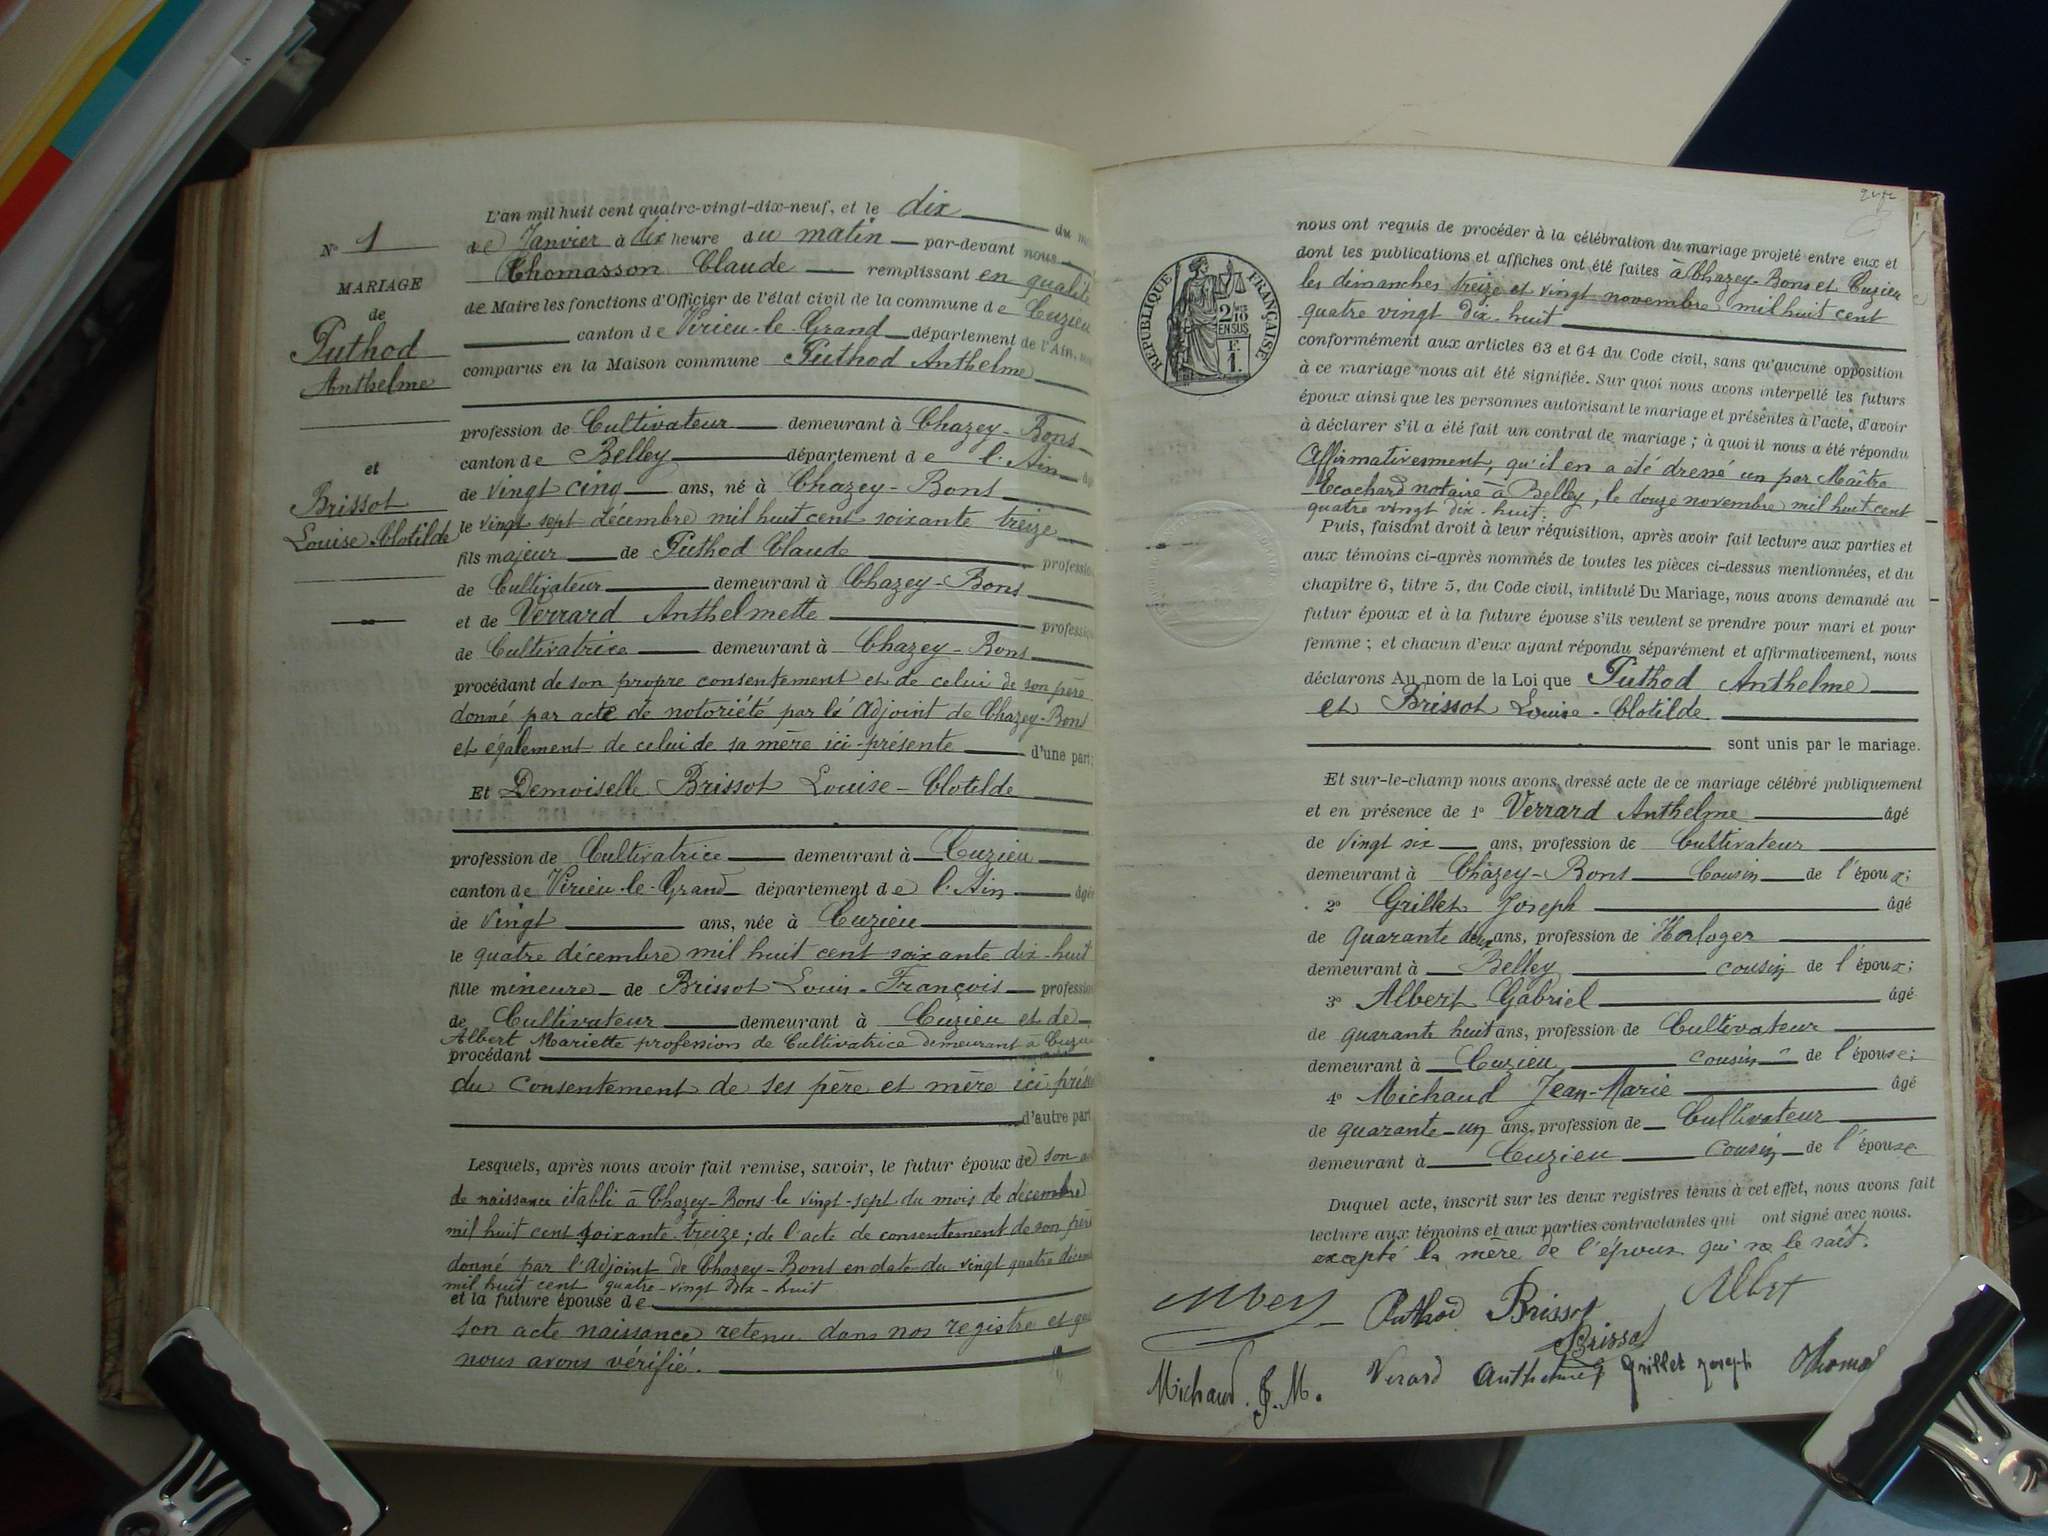 N° 1
MARIAGE
de
Puthod
Anthelme
et
Brissot
Louise Clotilde
L'an mil huit cent quatre-vingt-dix-neuf, et le dix du
de Janvier à dix heure du matin par-devant nous
Thomasson Claude remplissant en qualité
de Maire les fonctions d'Officier de l'état civil de la commune de Cuzieu
canton de Virieu-le-Grand département de l'Ain,
comparus en la Maison commune Puthod Anthelme
profession de Cultivateur demeurant à Chazey-Bons
canton de Belley département de l'Ain
de vingt cinq ans, né à Chazey-Bons
le vingt sept décembre mil huit cent soixante treize
fils majeur de Puthod Claude profession
de Cultivateur demeurant à Chazey-Bons
et de Verrard Anthelmette profession
de Cultivatrice demeurant à Chazey-Bons
procédant de son propre consentement et de celui de son père
donné par acte de notoriété par l'Adjoint de Chazey-Bons
et également de celui de sa mère ici-présente d'une part;
Et Demoiselle Brissot Louise-Clotilde
profession de Cultivatrice demeurant à Cuzieu
canton de Virieu-le-Grand département de l'Ain âgée
de vingt ans, née à Cuzieu
le quatre décembre mil huit cent soixante dix-huit
fille mineure de Brissot Louis-François profession
de Cultivateur demeurant à Cuzieu et de
Albert Mariette profession de Cultivatrice demeurant à Cuzieu
procédant
du consentement de ses père et mère ici
d'autre part
Lesquels, après nous avoir fait remise, savoir, le futur époux de son
de naissance établi à Chazey-Bons le vingt-sept du mois de décembre
mil huit cent soixante-treize; de l'acte de consentement de son père
donné par l'Adjoint de Chazey-Bons en date du vingt quatre
mil huit cent quatre-vingt dix-huit
et la future épouse de
son acte naissance retenu dans nos registre et que
nous avons vérifié.
RÉPUBLIQUE FRANÇAISE
2/10
EN SUS
F.
1.
nous ont requis de procéder à la célébration du mariage projeté entre eux et
dont les publications et affiches ont été faites à Chazey-Bons et Cuzieu
les dimanches treize et vingt novembre mil huit cent
quatre vingt dix-huit
conformément aux articles 63 et 64 du Code civil, sans qu'aucune opposition
à ce mariage nous ait été signifiée. Sur quoi nous avons interpellé les futurs
époux ainsi que les personnes autorisant le mariage et présentes à l'acte, d'avoir
à déclarer s'il a été fait un contrat de mariage; à quoi il nous a été répondu
Affirmativement, qu'il en a été dressé un par Maître
notaire à Belley, le douze novembre mil huit cent
quatre vingt dix-huit.
Puis, faisant droit à leur réquisition, après avoir fait lecture aux parties et
aux témoins ci-après nommés de toutes les pièces ci-dessus mentionnées, et du
chapitre 6, titre 5, du Code civil, intitulé Du Mariage, nous avons demandé au
futur époux et à la future épouse s'ils veulent se prendre pour mari et pour
femme; et chacun d'eux ayant répondu séparément et affirmativement, nous
déclarons Au nom de la Loi que Puthod Anthelme
et Brissot Louise-Clotilde
sont unis par le mariage.
Et sur-le-champ nous avons dressé acte de ce mariage célébré publiquement
et en présence de 1° Verrard Anthelme âgé
de vingt six ans, profession de Cultivateur
demeurant à Chazey-Bons Cousin de l'époux;
2° Grillet Joseph âgé
de quarante deux ans, profession de Horloger
demeurant à Belley cousin de l'époux;
3° Albert Gabriel âgé
de quarante huit ans, profession de Cultivateur
demeurant à Cuzieu cousin de l'épouse;
4° Michaud Jean-Marie âgé
de quarante-un ans, profession de Cultivateur
demeurant à Cuzieu cousin de l'épouse
Duquel acte, inscrit sur les deux registres tenus à cet effet, nous avons fait
lecture aux témoins et aux parties contractantes qui ont signé avec nous.
excepté la mère de l'époux qui ne le sait.
Puthod Brissot Albert
Brissot
Michaud J. M. Verard Anthelme Grillet Joseph